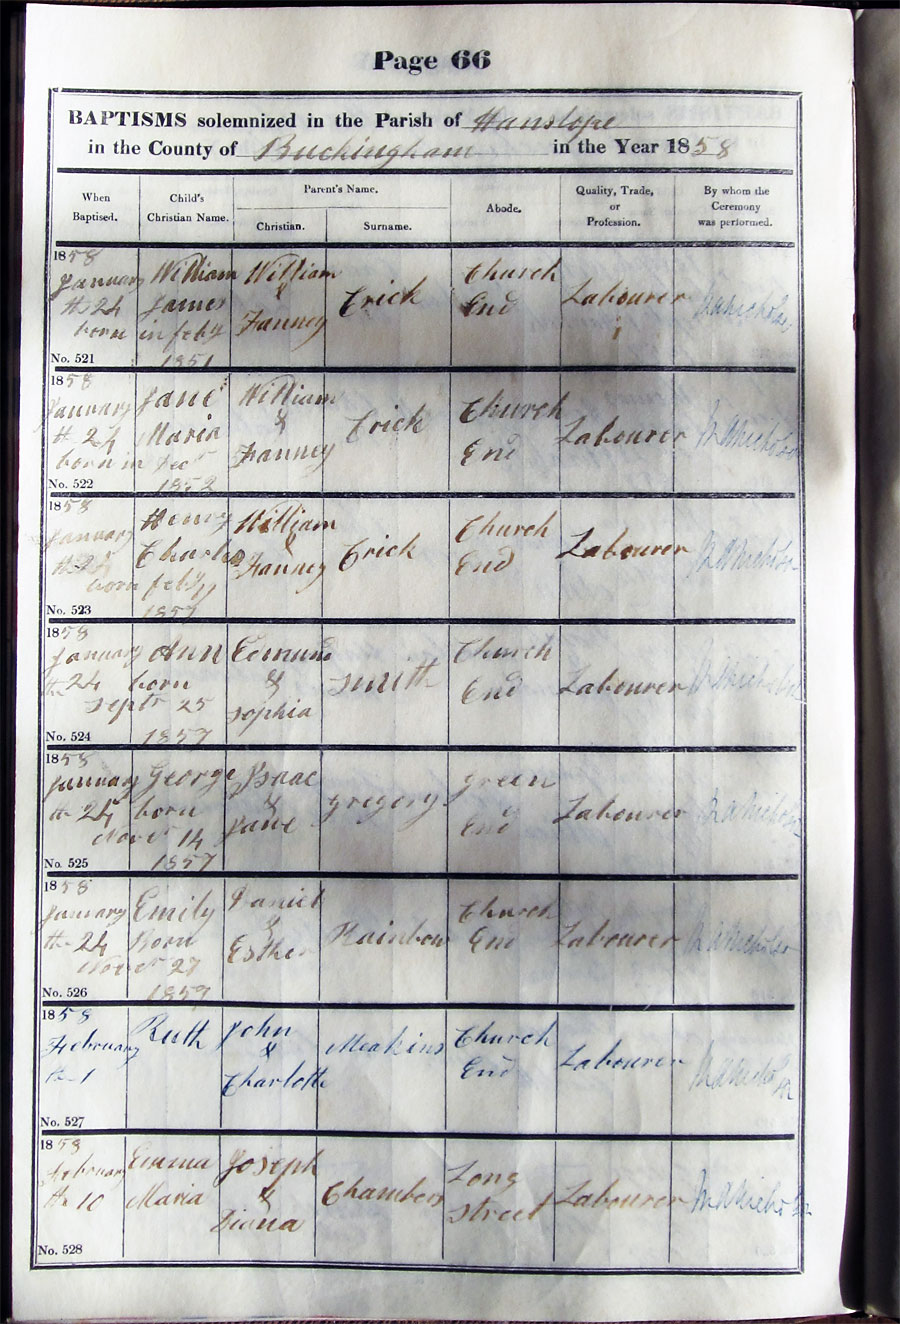 Page 66
BAPTISMS solemnized in the Parish of Hanslope
in the County of Buckingham in the Year 1858
When Baptised. Child's Christian Name. Parent's Name. Christian. Surname. Abode. Quality, Trade, or Profession. By whom the Ceremony was performed.
1858
January William William Church
the 24 James & Erick End Labourer
born in feby Fanney
1851
No. 521
1858
January Jane William Church
the 24 Maria & Erick End Labourer
born in Decr Fanney
1852
No. 522
1858
January Henry William Church
the 24 Charles & Erick End Labourer
born feby Fanney
1857
No. 523
1858
January Ann Edmund Church
the 24 born & Smith End Labourer
Septr 25 Sophia
1857
No. 524
1858
January George Isaac green
the 24 born & gregory End Labourer
Novr 14 Jane
1857
No. 525
1858
January Emily Daniel Church
the 24 Born & Rainbow End Labourer
Novr 27 Esther
1857
No. 526
1858
February Ruth John Church
the 1 & Meakins End Labourer
Charlotte
No. 527
1858
February Emma Joseph Long
the 10 Maria & Chambers Street Labourer
Diana
No. 528